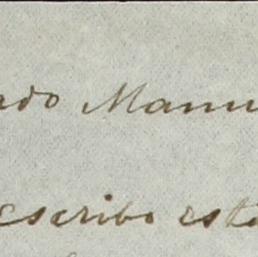 ado Manu
escribo esta